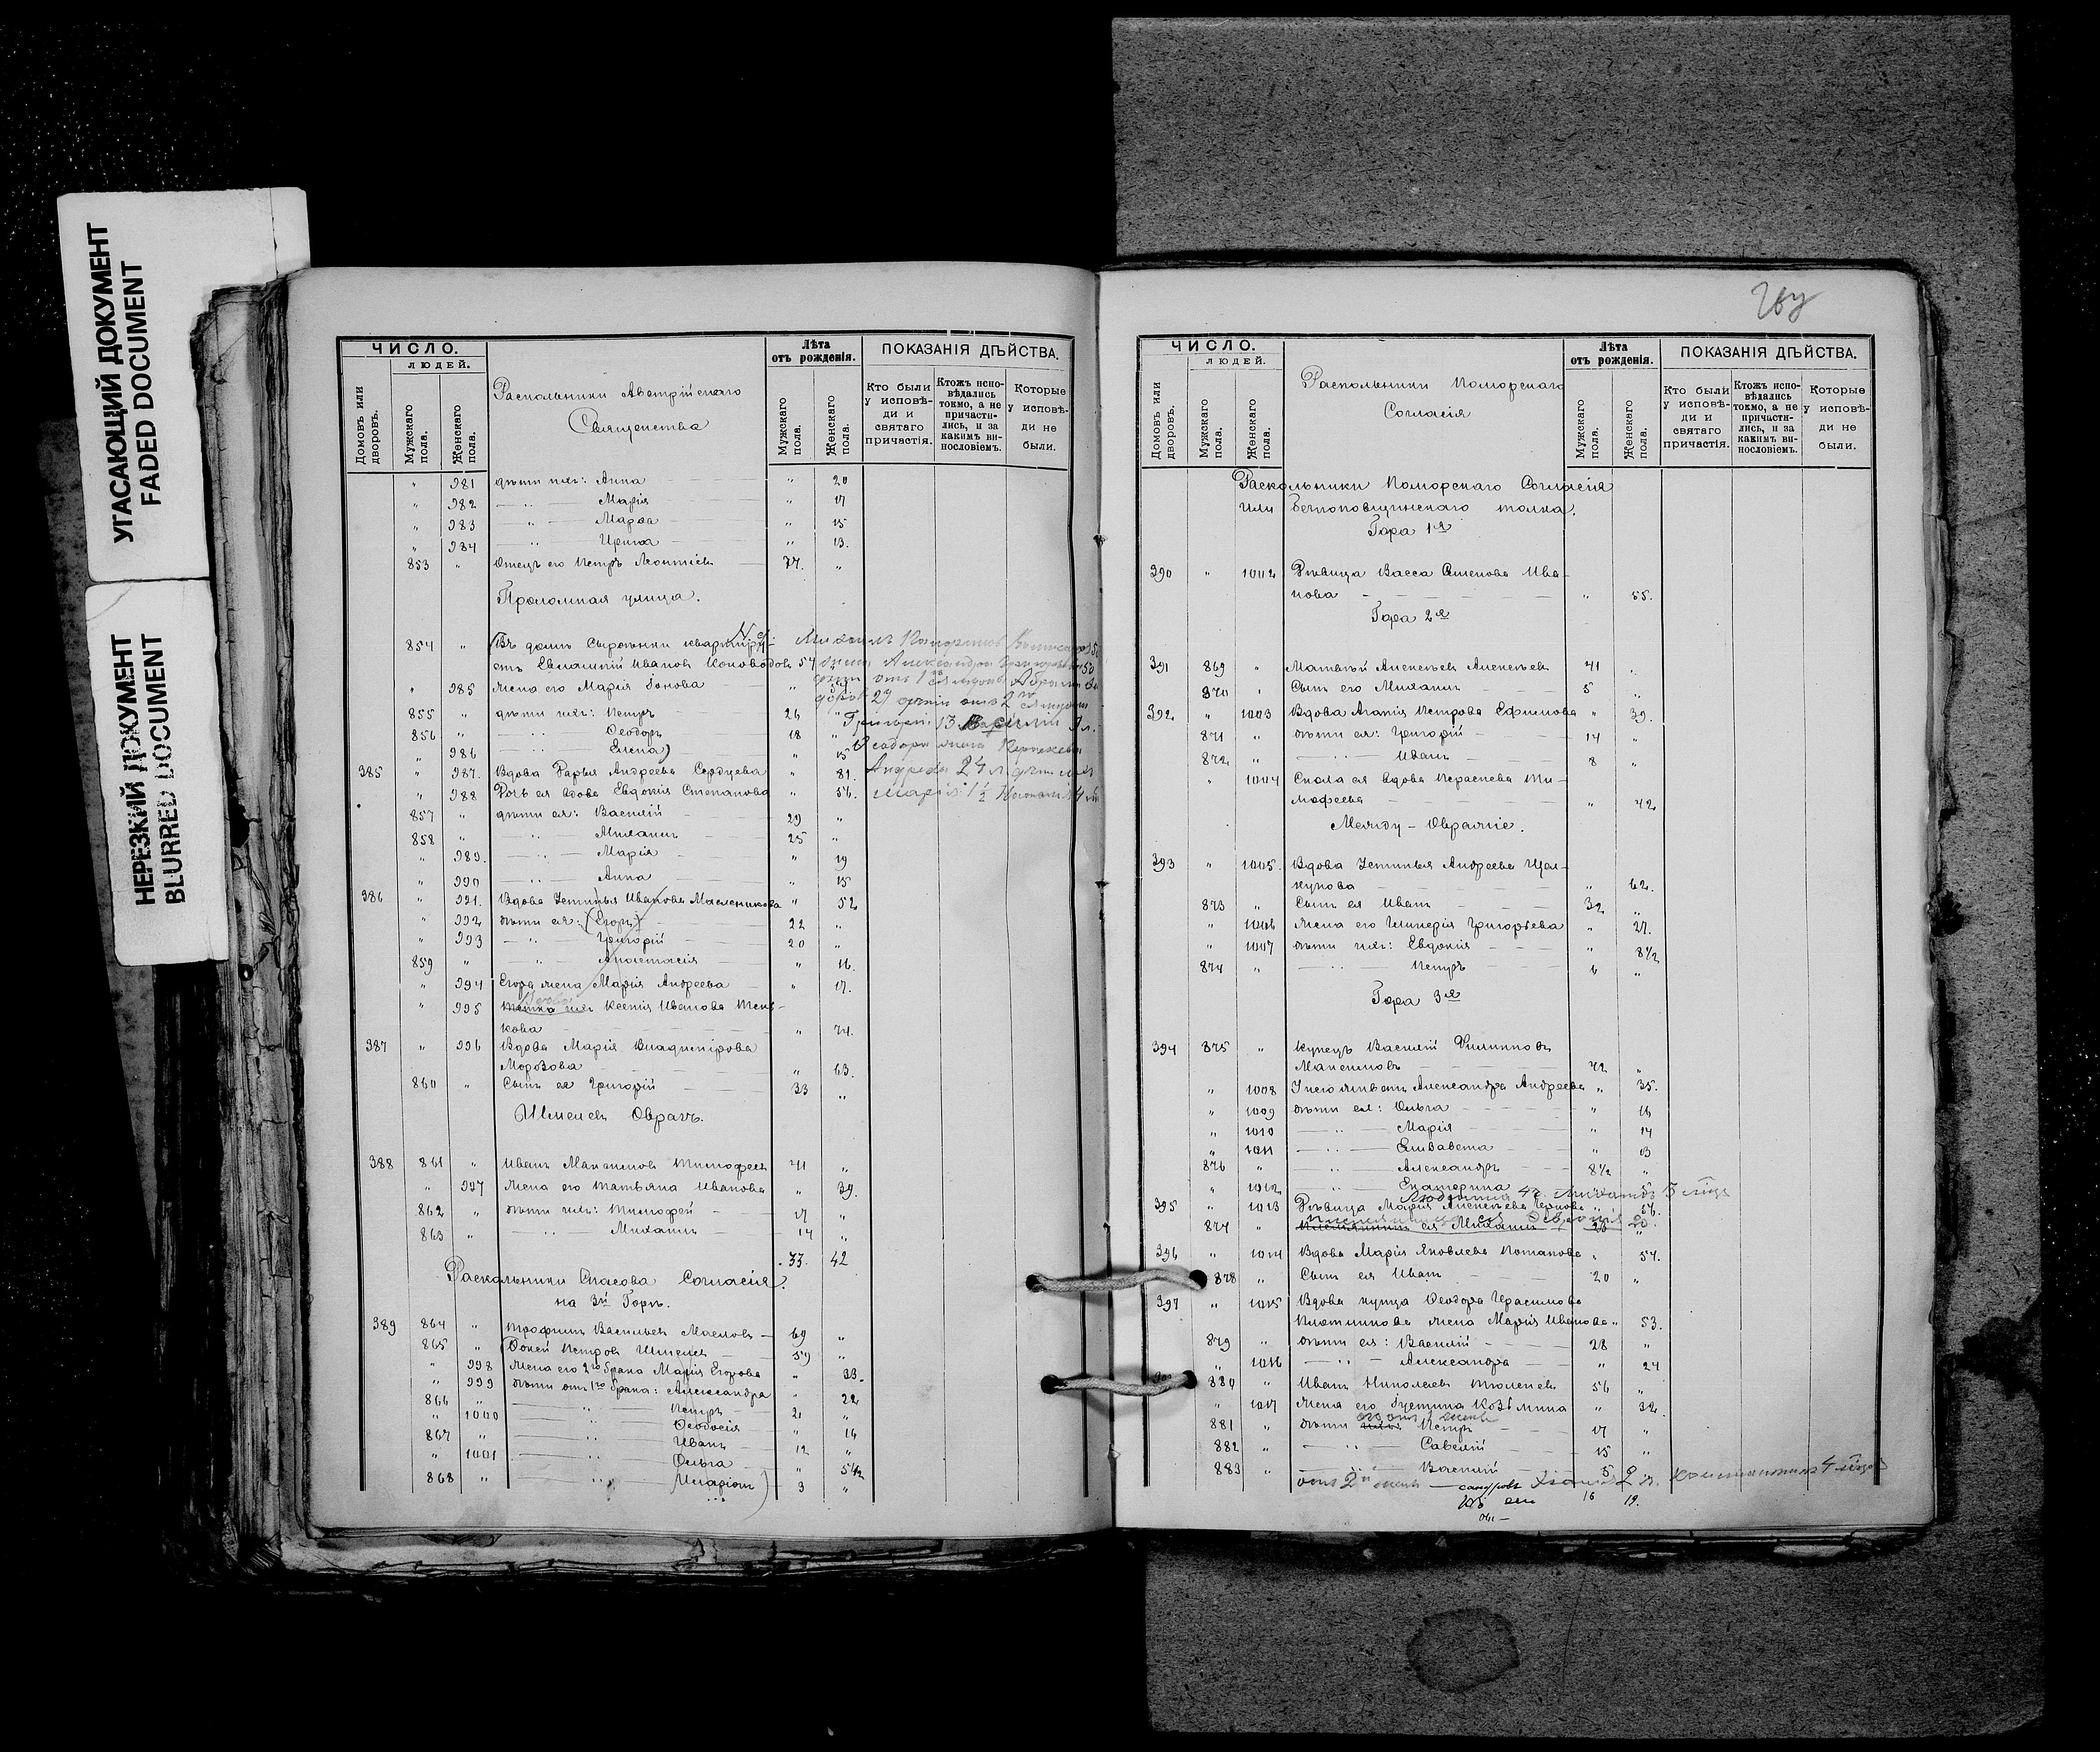 УГАСАЮЩИЙ ДОКУМЕНТ
FADED DOCUMENT
НЕРЕЗКИЙ ДОКУМЕНТ
BLURRED DOCUMENT
ЧИСЛО.
ЛЮДЕЙ.
Домовъ или дворовъ.
Мужскаго пола.
Женскаго пола.
Раскольники Австрійскаго
Священства
Лѣта
отъ рожденія.
Мужскаго пола.
Женскаго пола.
ПОКАЗАНІЯ ДѢЙСТВА.
Кто были у исповѣди и святаго причастія.
Ктожъ исповѣдались токмо, а не причастились, и за какимъ винословіемъ.
Которые у исповѣди не были.
" 981 дѣти ихъ: Анна " 20
" 982 — " — Марія " 17
" 983 — " — Марѳа " 15
" 984 — " — Ирина " 13.
853 " Отецъ его Петръ Леонтіевъ 77. "
Проломная улица.
854 " Въ домѣ
Евлампій Ивановъ Коноводовъ 54
" 985 Жена его Марія "
855 " дѣти ихъ: Петръ 26 "
856 " — " — Ѳеодоръ 18 "
" 986 — " — Елена " 15
385 " 987. Вдова Дарья Андреева Сердцева " 81.
" 988 Дочь ея вдова Евдокія Степанова " 56.
857 " дѣти ея: Василій 29 "
858 " — " — Михаилъ 25 "
" 989. — " — Марія " 19
" 990 — " — Анна " 15
386 " 991. Вдова Устинья Иванова Масленикова " 52
" 992 дѣти ея: (Егоръ) 22 "
" 993 — " — Григорій 20 "
859 " — " — Анастасія " 16.
" 994 Егора жена Марія Андреева " 17.
" 995 Ксенія Иванова
кова " 74.
387 " 996 Вдова Марія Владимірова
Морозова " 63.
860 " Сынъ ея Григорій 33 "
Шмелевъ Оврагъ.
388 861 " Иванъ Максимовъ Тимофеевъ 41 "
" 997 Жена его Татьяна Иванова " 39.
862 " дѣти ихъ: Тимофей 17 "
863 " — " — Михаилъ 14 "
33. 42
Раскольники Спасова Согласія
на 3й Горѣ.
389 864 " Трофимъ Васильевъ Масловъ 69 "
865 " Фокей Петровъ Шмелевъ 59 "
" 998 Жена его 2го брака Марія Егорова " 33.
" 999 дѣти отъ 1го брака: Александра " 22
866 " — " — Петръ 21 "
" 1000 — " — Ѳеодосія " 16
867 " — " — Иванъ 12 "
" 1001 — " — Ольга " 5½
868 " — " — Иларіонъ) 3 "
ЧИСЛО.
ЛЮДЕЙ.
Домовъ или дворовъ.
Мужскаго пола.
Женскаго пола.
Раскольники Поморскаго
Согласія
Лѣта
отъ рожденія.
Мужскаго пола.
Женскаго пола.
ПОКАЗАНІЯ ДѢЙСТВА.
Кто были у исповѣди и святаго причастія.
Ктожъ исповѣдались токмо, а не причастились, и за какимъ винословіемъ.
Которые у исповѣди не были.
Раскольники Поморскаго Согласія
или Безпоповщинскаго толка.
Гора 1я
390 " 1002 Дѣвица Васса Семенова Ива-
нова " 55.
Гора 2я
391 869 " Матвѣй Алексѣевъ Алексѣевъ 41 "
870 " Сынъ его Михаилъ 5 "
392 " 1003 Вдова Агапія Петрова Ефимова " 39.
871 " дѣти ея: Григорій 14 "
872 " — " — Иванъ 8 "
" 1004 Сноха ея вдова Парасковья Ти-
мофеева " 42
Между-Овражіе.
393 " 1005. Вдова Устинья Андреева Щел-
кунова " 62.
873 " Сынъ ея Иванъ 32 "
" 1006 Жена его Гликерія Григорьева " 27.
" 1007 дѣти ихъ: Евдокія " 8½
874 " — " — Петръ 6 "
Гора 3я
394 875 " Купецъ Василій Филипповъ
Максимовъ 72 "
" 1008 У него живетъ Александра Андреева " 35.
" 1009 дѣти ея: Ольга " 16
" 1010 — " — Марія " 14
" 1011 — " — Елизавета " 13
876 " — " — Александръ 8½ "
" 1012 — " — Екатерина " 5
395 " 1013 Дѣвица Марія Алексѣева Чернова " 56.
877 " ея Михаилъ 20
396 " 1014 Вдова Марія Яковлева Потапова " 57.
878 " Сынъ ея Иванъ 20 "
397 " 1015 Вдова купца Ѳеодора Герасимова
Плотникова жена Марія Иванова " 53.
879 " дѣти ея: Василій 28 "
" 1016 — " — Александра " 24
880 " Иванъ Николаевъ Тюленевъ 56 "
" 1017 Жена его Іустина Козьмина " 32.
881 " дѣти Петръ 17 "
882 " — " — Савелій 15 "
883 " — " — Василій 5
отъ 2й жены
16 19.